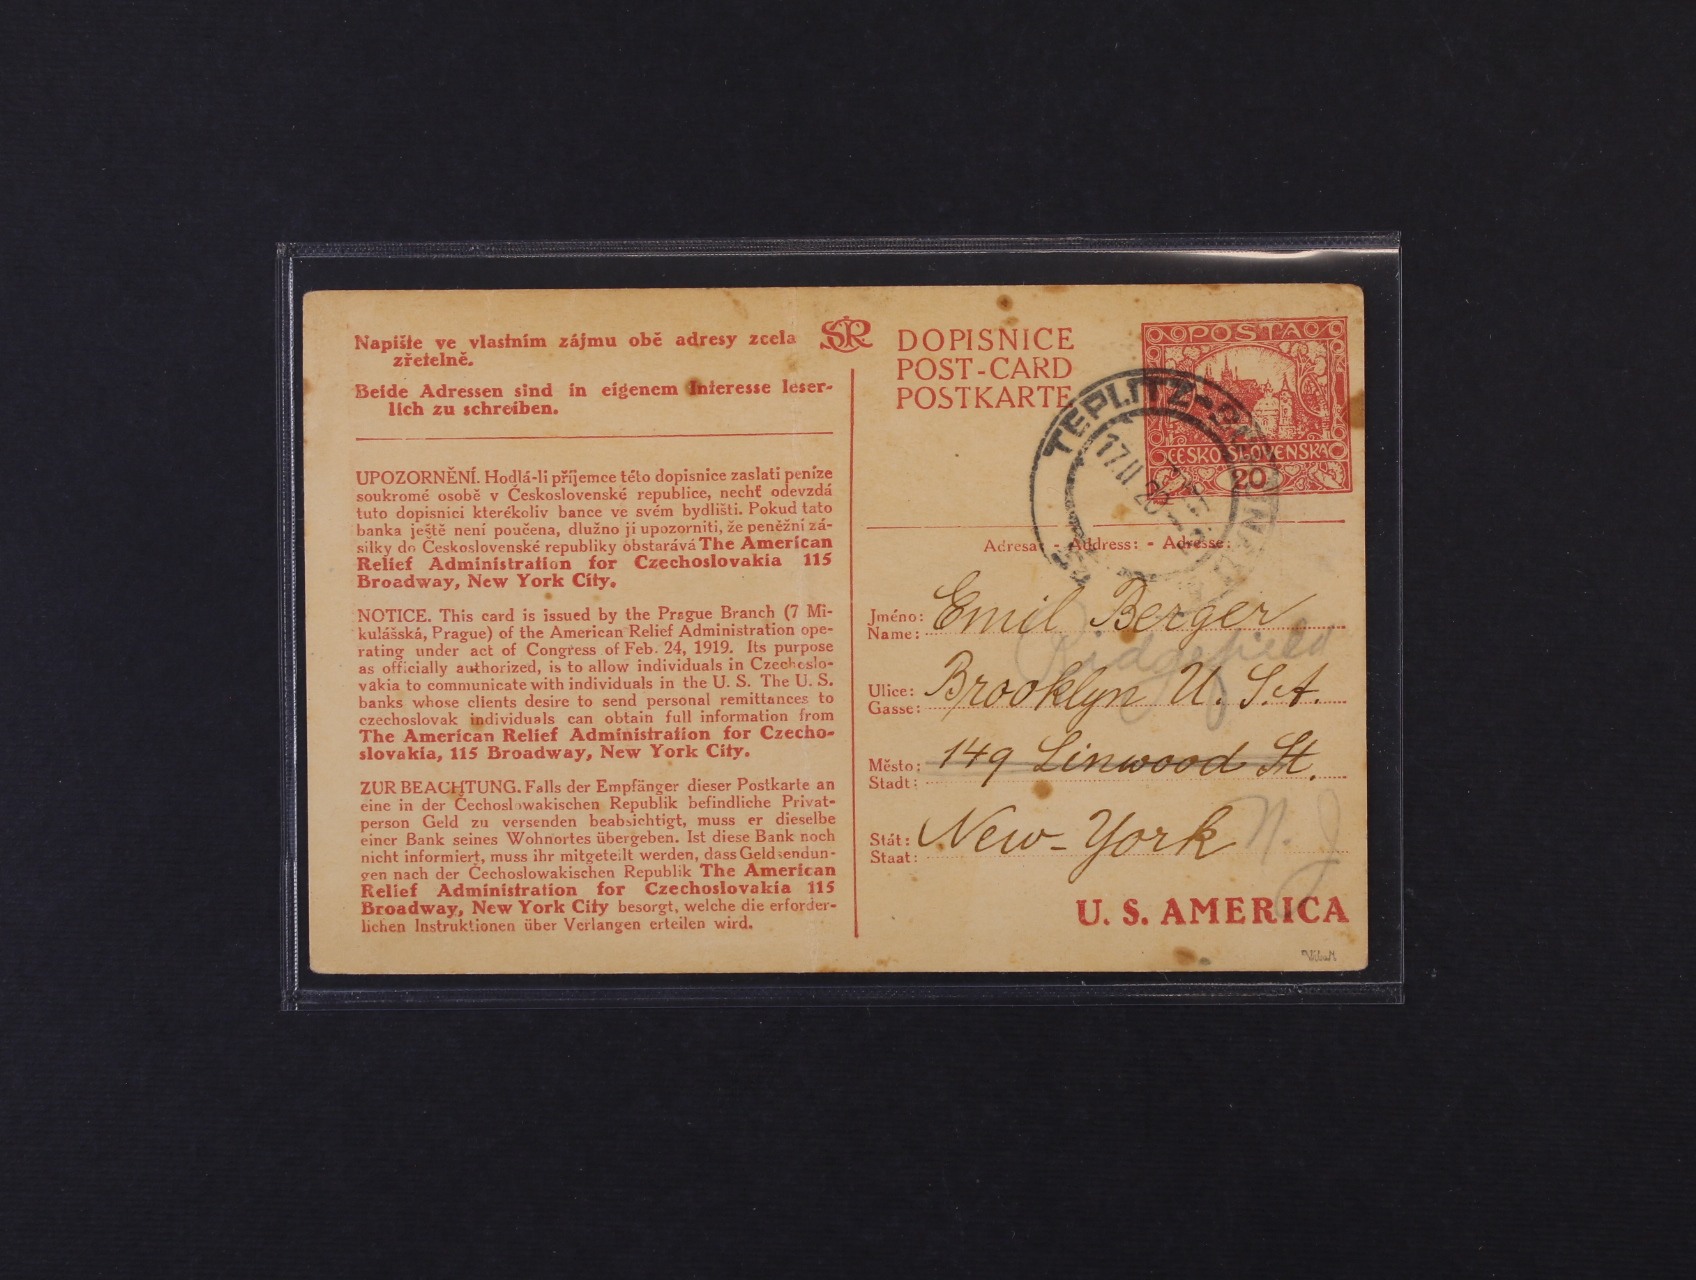 Napište ve vlastním zájmu obě adresy zcela
zřetelně.
Beide Adressen sind in eigenem Interesse leser-
lich zu schreiben.
UPOZORNĚNÍ. Hodlá-li příjemce této dopisnice zaslati peníze
soukromé osobě v Československé republice, nechť odevzdá
tuto dopisnici kterékoliv bance ve svém bydlišti. Pokud tato
banka ještě není poučena, dlužno ji upozorniti, že peněžní zá-
silky do Československé republiky obstarává The American
Relief Administration for Czechoslovakia 115
Broadway, New York City.
NOTICE. This card is issued by the Prague Branch (7 Mi-
kulášská, Prague) of the American Relief Administration ope-
rating under act of Congress of Feb. 24, 1919. Its purpose
as officially authorized, is to allow individuals in Czechoslo-
vakia to communicate with individuals in the U. S. The U. S.
banks whose clients desire to send personal remittances to
czechoslovak individuals can obtain full information from
The American Relief Administration for Czecho-
slovakia, 115 Broadway, New York City.
ZUR BEACHTUNG. Falls der Empfänger dieser Postkarte an
eine in der Čechoslowakischen Republik befindliche Privat-
person Geld zu versenden beabsichtigt, muss er dieselbe
einer Bank seines Wohnortes übergeben. Ist diese Bank noch
nicht informiert, muss ihr mitgeteilt werden, dass Geldsendun-
gen nach der Čechoslowakischen Republik The American
Relief Administration for Czechoslovakia 115
Broadway, New York City besorgt, welche die erforder-
lichen Instruktionen über Verlangen erteilen wird.
ČSR
DOPISNICE
POST-CARD
POSTKARTE
POSTA
ČESKOSLOVENSKÁ
20
TEPLITZ-
17.II 20
Adresa: - Address: - Adresse:
Jméno: Emil Berger
Name:
Ridgefield
Ulice: Brooklyn U. S. A.
Gasse:
Město: 149 Linwood St.
Stadt:
Stát: New-York N. J
Staat:
U. S. AMERICA